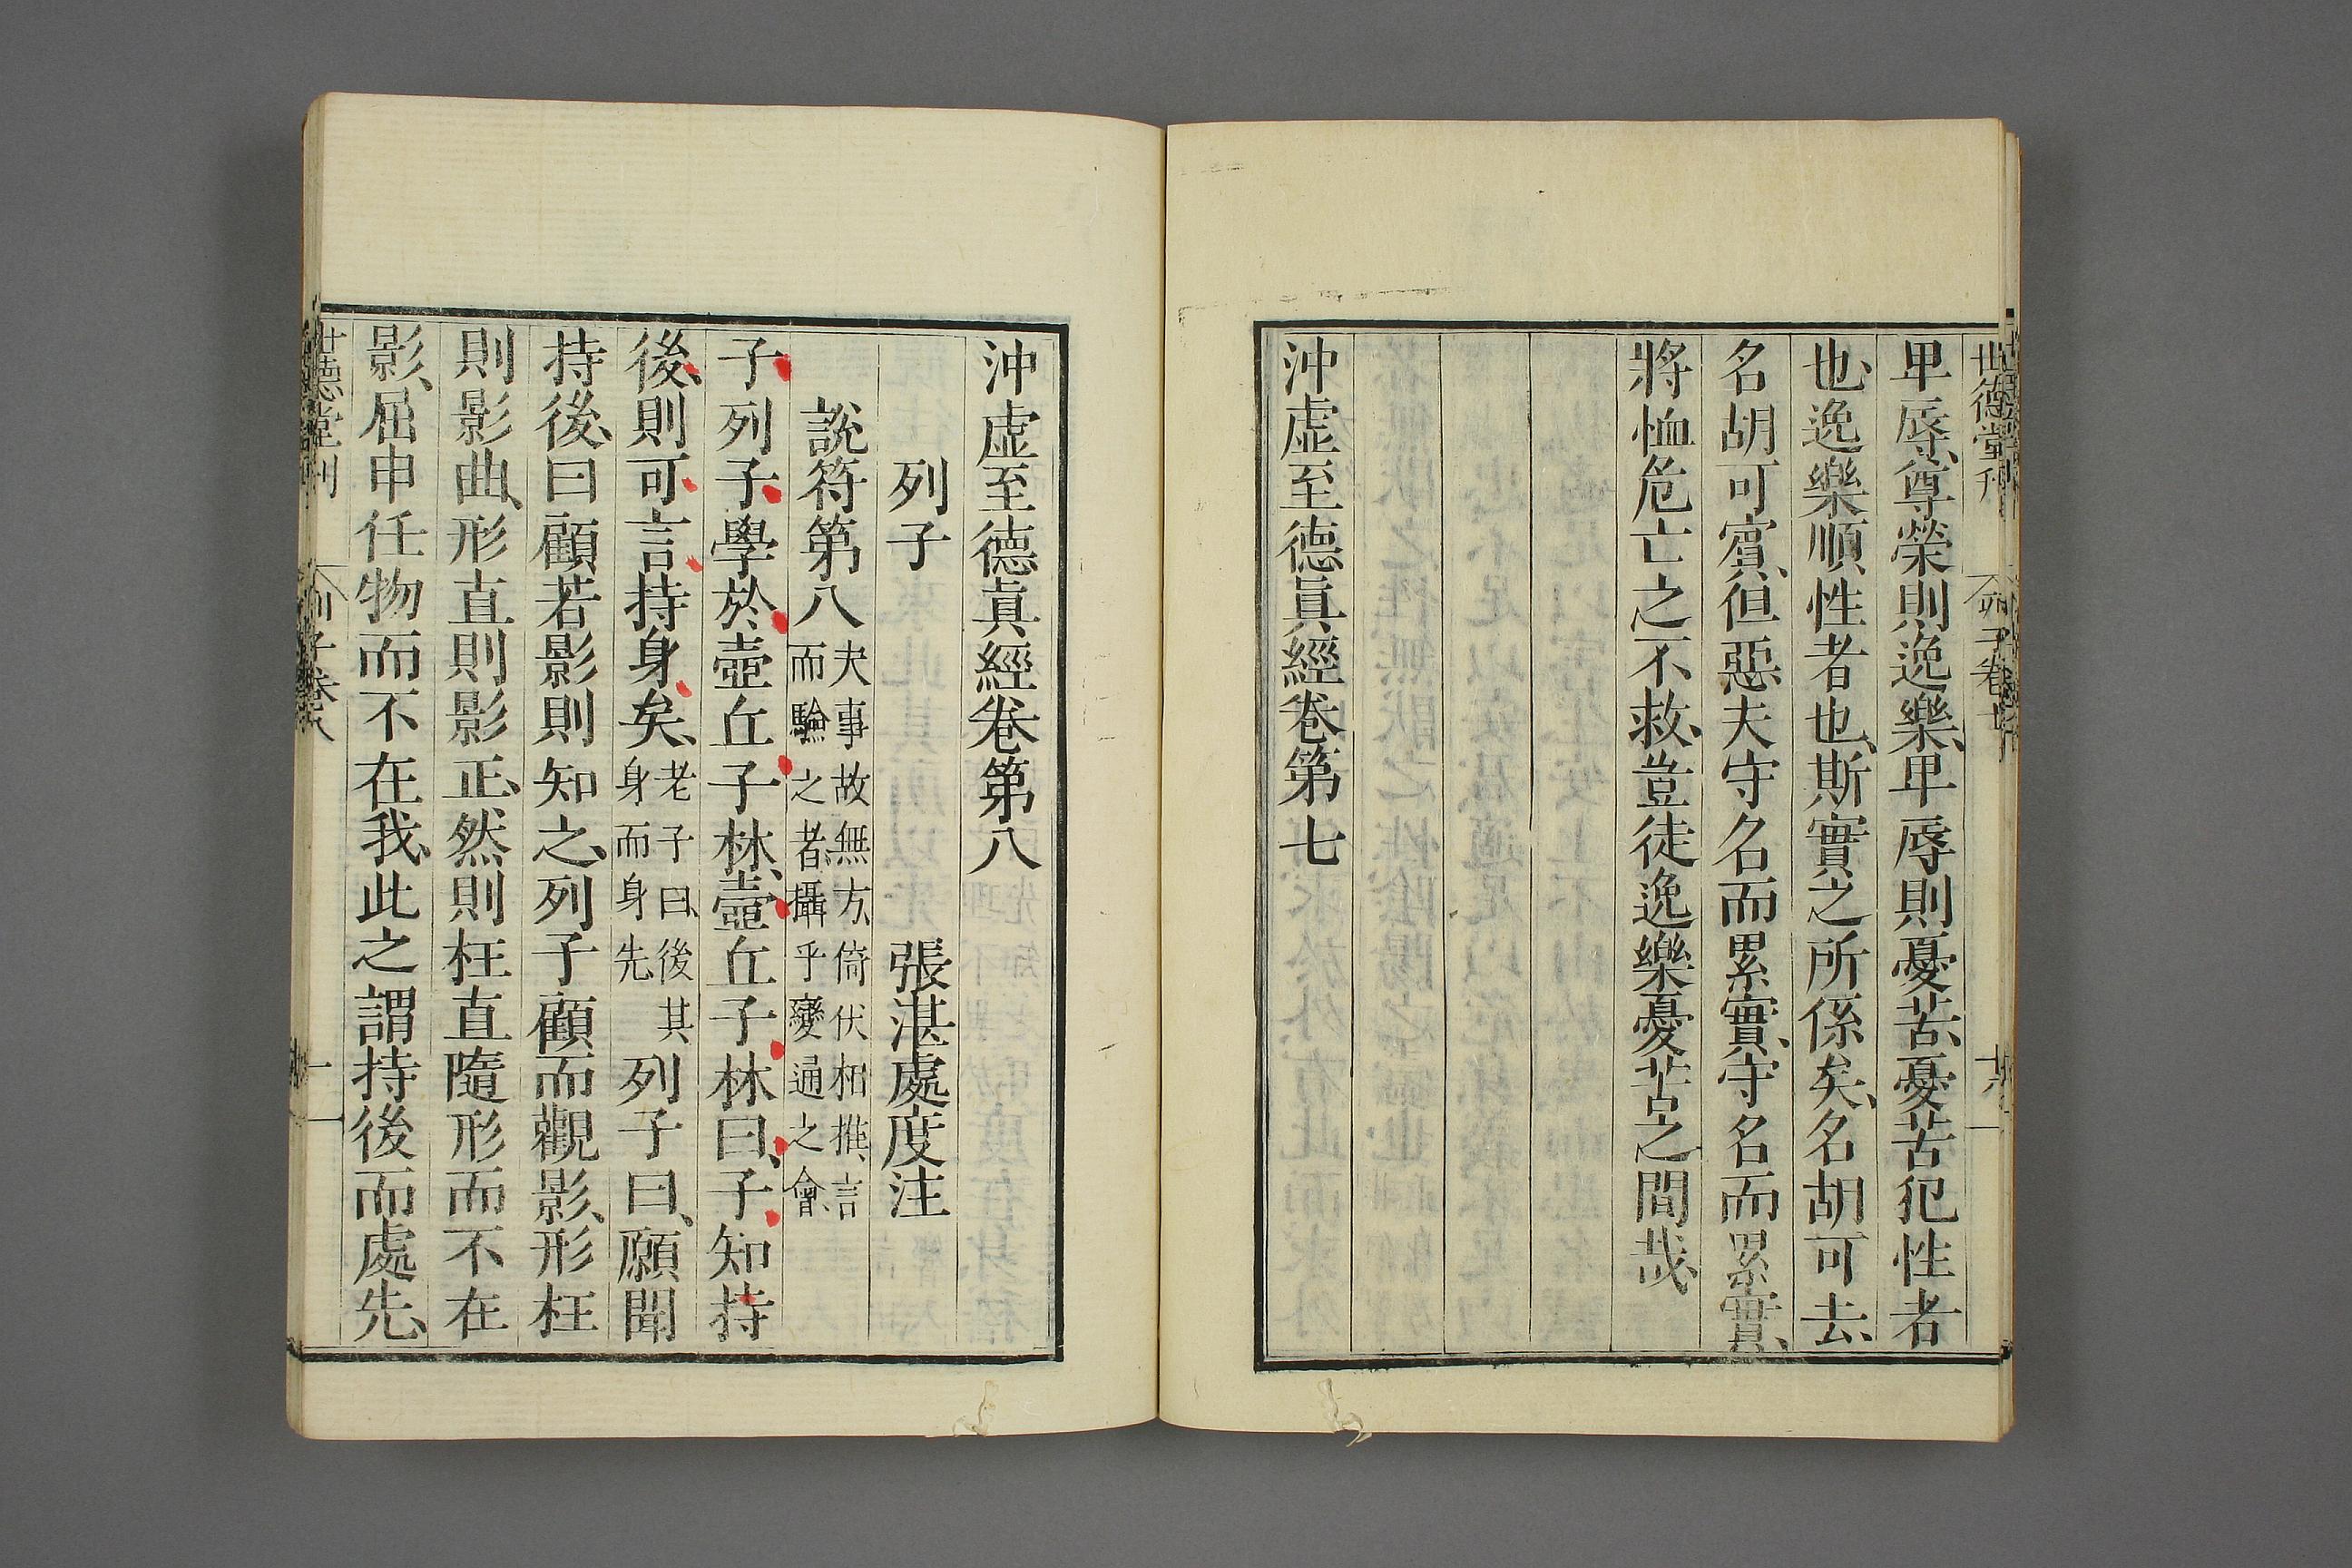 世德堂刊 列子卷七 十八
卑辱、尊榮則逸樂、卑辱則憂苦、憂苦犯性者
也、逸樂順性者也、斯實之所係矣、名胡可去、
名胡可賓、但惡夫守名而累實、守名而累實、
將恤危亡之不救、豈徒逸樂憂苦之間哉、
沖虛至德眞經卷第七
沖虛至德眞經卷第八
列子 張湛處度注
說符第八 夫事故無方、倚伏相推、言
而驗之者、攝乎變通之會、
子列子學於壺丘子林、壺丘子林曰、子知持
後、則可言持身矣、 老子曰、後其
身而身先 列子曰、願聞
持後、曰顧若影則知之、列子顧而觀影、形枉
則影曲、形直則影正、然則枉直隨形而不在
影、屈申任物而不在我、此之謂持後而處先、
世德堂刊 列子卷八 一